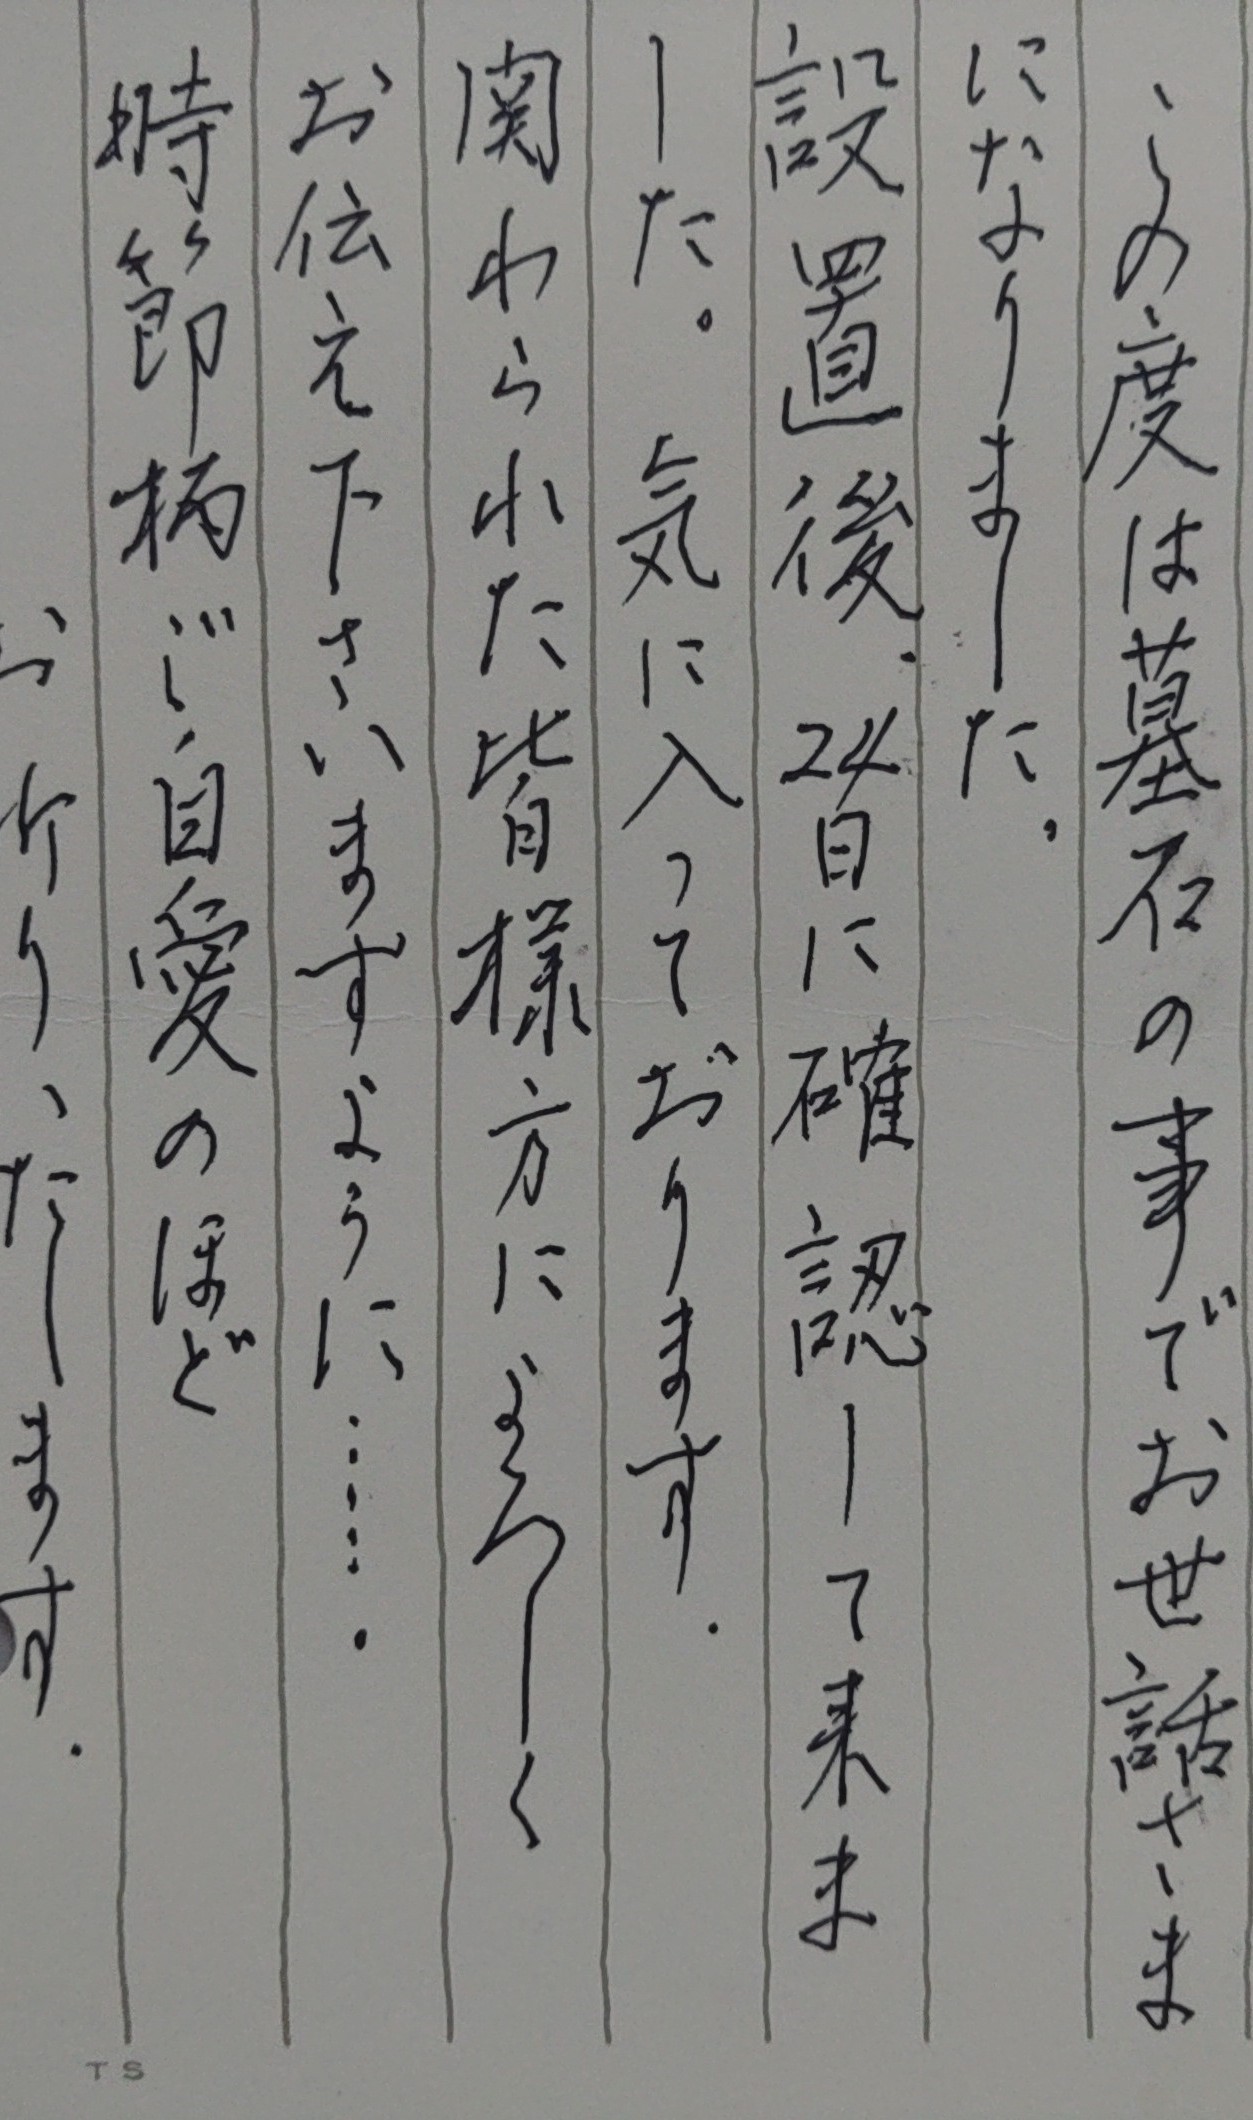 この度は墓石の事でお世話さま
になりました。
設置後、24日に確認して来ま
した。気に入っております。
関わられた皆様方によろしく
お伝え下さいますように……。
時節柄ご自愛のほど
お祈りいたします。
TS